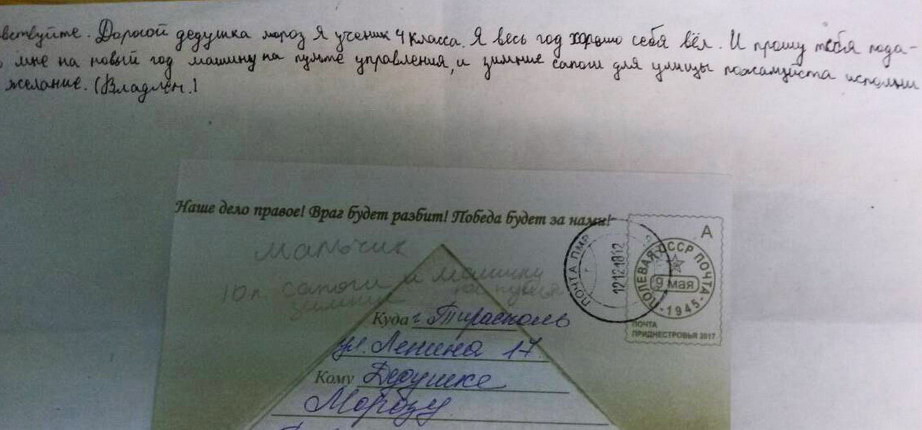 вствуйте. Дорогой дедушка мороз я ученик 4 класса. Я весь год хорошо себя вёл. И прошу тебя пода-
мне на новый год машину на пульте управления, и зимние сапоги для улицы пожалуйста исполни
желание. (Владлен.)
Наше дело правое! Враг будет разбит! Победа будет за нами!
мальчик
10 л. сапоги и машину
зимние
Куда г. Тирасполь
ул. Ленина 17
Кому Дедушке
Морозу
ПОЧТА ПМР
12.12.18 12
А
ПОЛЕВАЯ СССР ПОЧТА
9 мая
1945
ПОЧТА
ПРИДНЕСТРОВЬЯ 2017